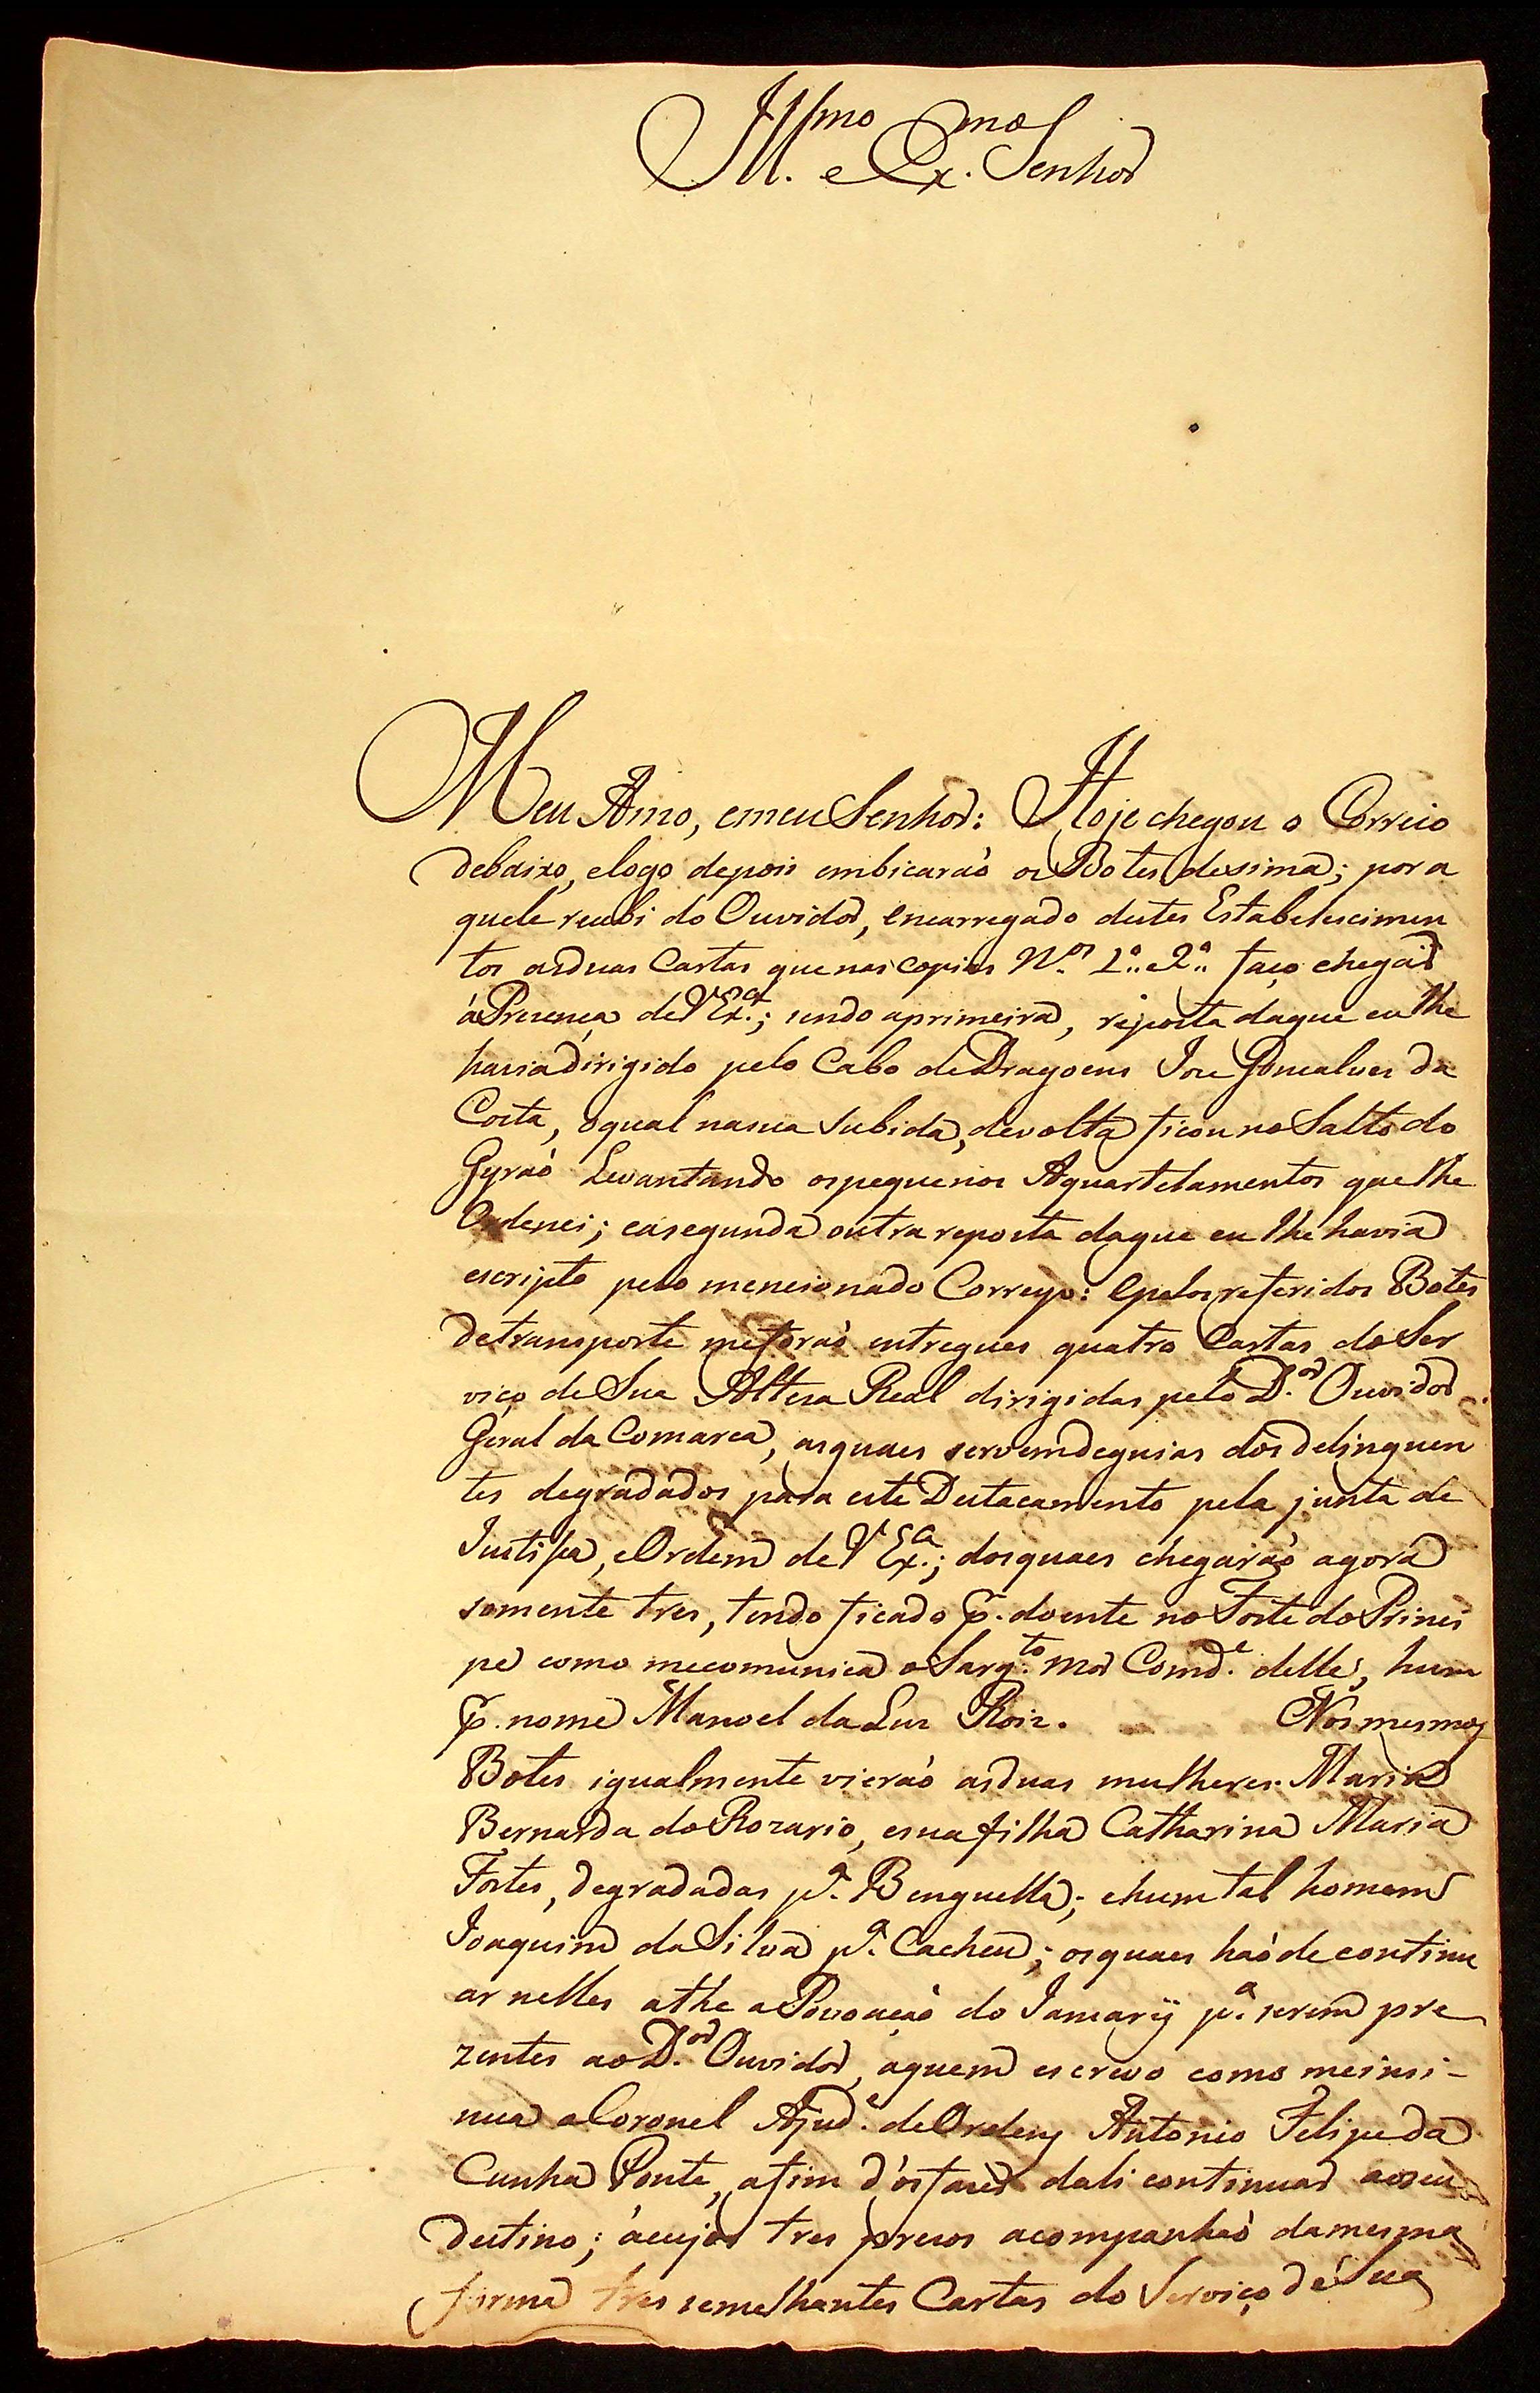 Ill.mo e Ex.mo Senhor
Meu Amo, emeu Senhor: Hoje chegou o Correio
debaixo, elogo depois embicaraò os Botes desima; por a
quele recebi do Ouvidor, encarregado destes Estabelescimen
tos asduas Cartas que nas copias N.os 1.ª e 2.ª faço chegar
á Presença de V Ex.ª; sendo aprimeira, resposta daque eu lhe
haviadirigido pelo Cabo de Dragoens Joze Gonçalves da
Costa, oqual nasua subida, devolta ficou no Salto do
Gyraò Levantando ospequenos Aquartelamentos que lhe
Ordenei; easegunda outra reposta daque eu lhe havia
escripto pelo mencionado Correyo: epelos referidos Botes
detransporte meforaò entregues quatro Cartas do Ser
viço de Sua Alteza Real dirigidas pelo D.or Ouvidor
Geral da Comarca, asquaes servemdeguias dos delinquen
tes degradados para este Destacamento pela junta de
Justiça, eOrdem de V Ex.ª; dosquaes chegaraò agora
somente tres, tendo ficado p. doente no Forte do Princi
pe como mecomunica o Sarg.to Mor Comd.e delle, hum
p. nome Manoel da Luz Roiz. Nos mesmos
Botes igualmente vieraò asduas mulheres Maria
Bernarda do Rozario, esua filha Catharina Maria
Fortes, degradadas p.ª Benguella; ehum tal homem
Joaquim da Silva p.ª Cacheu; osquaes haò de continu
ar nelles athe a Povoaçaò do Jamarÿ p.ª serem pre
zentes ao D.or Ouvidor, aquem escrevo como meinsi-
nua o Coronel Ajud.e de Ordens Antonio Felipe da
Cunha Ponte, afim d'os fazer dali continuar aoseu
destino; ácujos tres prezos acompanhaò damesma
forma tres semelhantes Cartas do Serviço de Sua